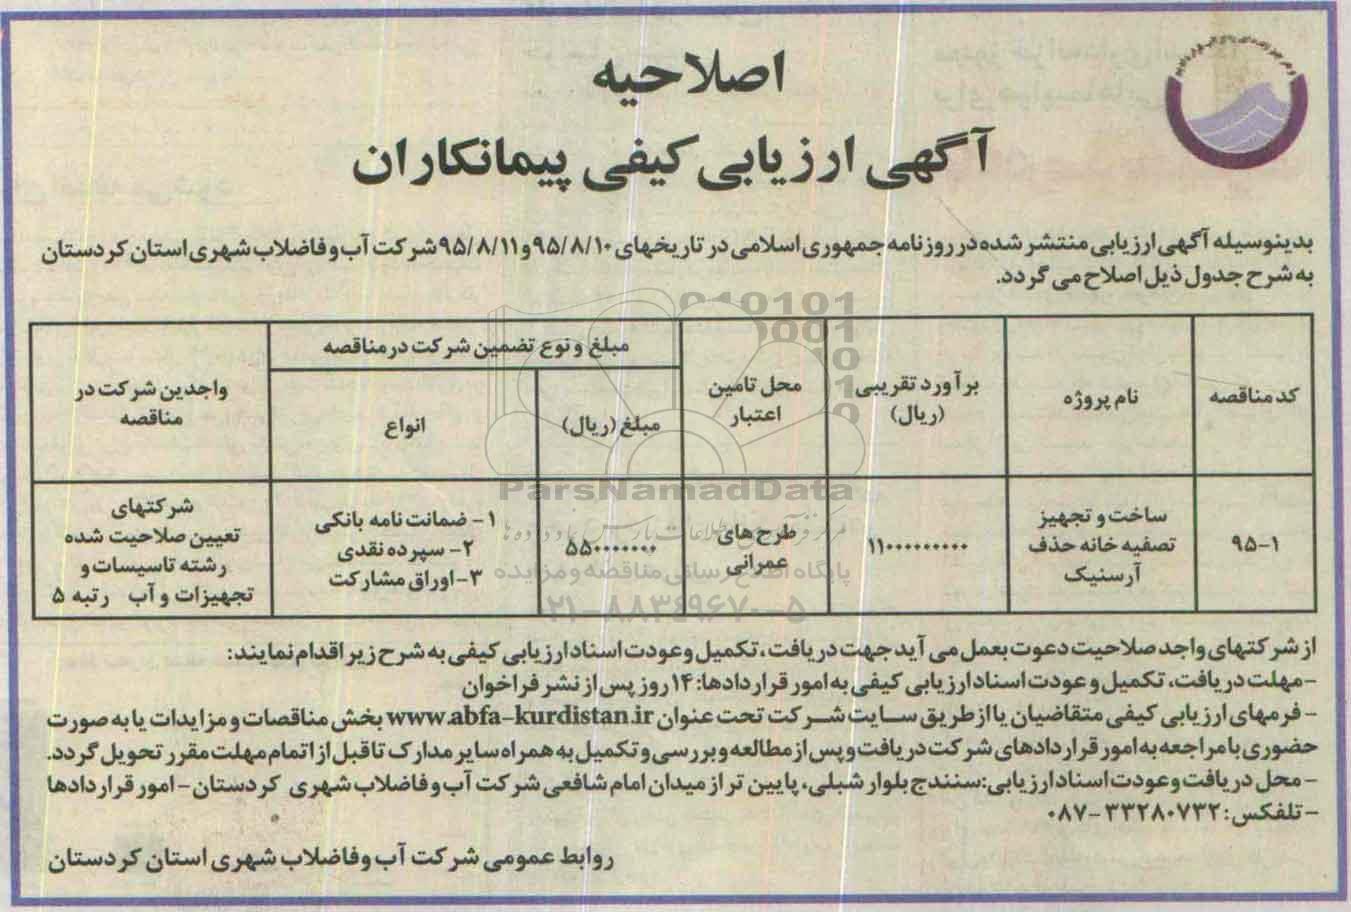 اصلاحیه
آگهی ارزیابی کیفی پیمانکاران
بدینوسیله آگهی ارزیابی منتشر شده در روزنامه جمهوری اسلامی در تاریخهای ۹۵/۸/۱۰ و ۹۵/۸/۱۱ شرکت آب و فاضلاب شهری استان کردستان
به شرح جدول ذیل اصلاح می گردد.
کد مناقصه
نام پروژه
برآورد تقریبی
(ریال)
محل تامین
اعتبار
مبلغ و نوع تضمین شرکت در مناقصه
مبلغ (ریال)
انواع
واجدین شرکت در
مناقصه
۹۵-۱
ساخت و تجهیز
تصفیه خانه حذف
آرسنیک
۱۱۰۰۰۰۰۰۰۰۰
طرح های
عمرانی
۵۵۰۰۰۰۰۰۰
۱- ضمانت نامه بانکی
۲- سپرده نقدی
۳- اوراق مشارکت
شرکتهای
تعیین صلاحیت شده
رشته تاسیسات و
تجهیزات و آب رتبه ۵
از شرکتهای واجد صلاحیت دعوت بعمل می آید جهت دریافت، تکمیل و عودت اسناد ارزیابی کیفی به شرح زیر اقدام نمایند:
- مهلت دریافت، تکمیل و عودت اسناد ارزیابی کیفی به امور قراردادها: ۱۴ روز پس از نشر فراخوان
- فرمهای ارزیابی کیفی متقاضیان یا از طریق سایت شرکت تحت عنوان www.abfa-kurdistan.ir بخش مناقصات و مزایدات یا به صورت
حضوری با مراجعه به امور قراردادهای شرکت دریافت و پس از مطالعه و بررسی و تکمیل به همراه سایر مدارک تا قبل از اتمام مهلت مقرر تحویل گردد.
- محل دریافت و عودت اسناد ارزیابی: سنندج بلوار شبلی، پایین تر از میدان امام شافعی شرکت آب و فاضلاب شهری کردستان - امور قراردادها
- تلفکس: ۳۳۲۸۰۷۳۲-۰۸۷
روابط عمومی شرکت آب وفاضلاب شهری استان کردستان
ParsNamadData
پایگاه اطلاع رسانی مناقصه و مزایده
۰۲۱-۸۸۳۴۹۶۷۰-۵